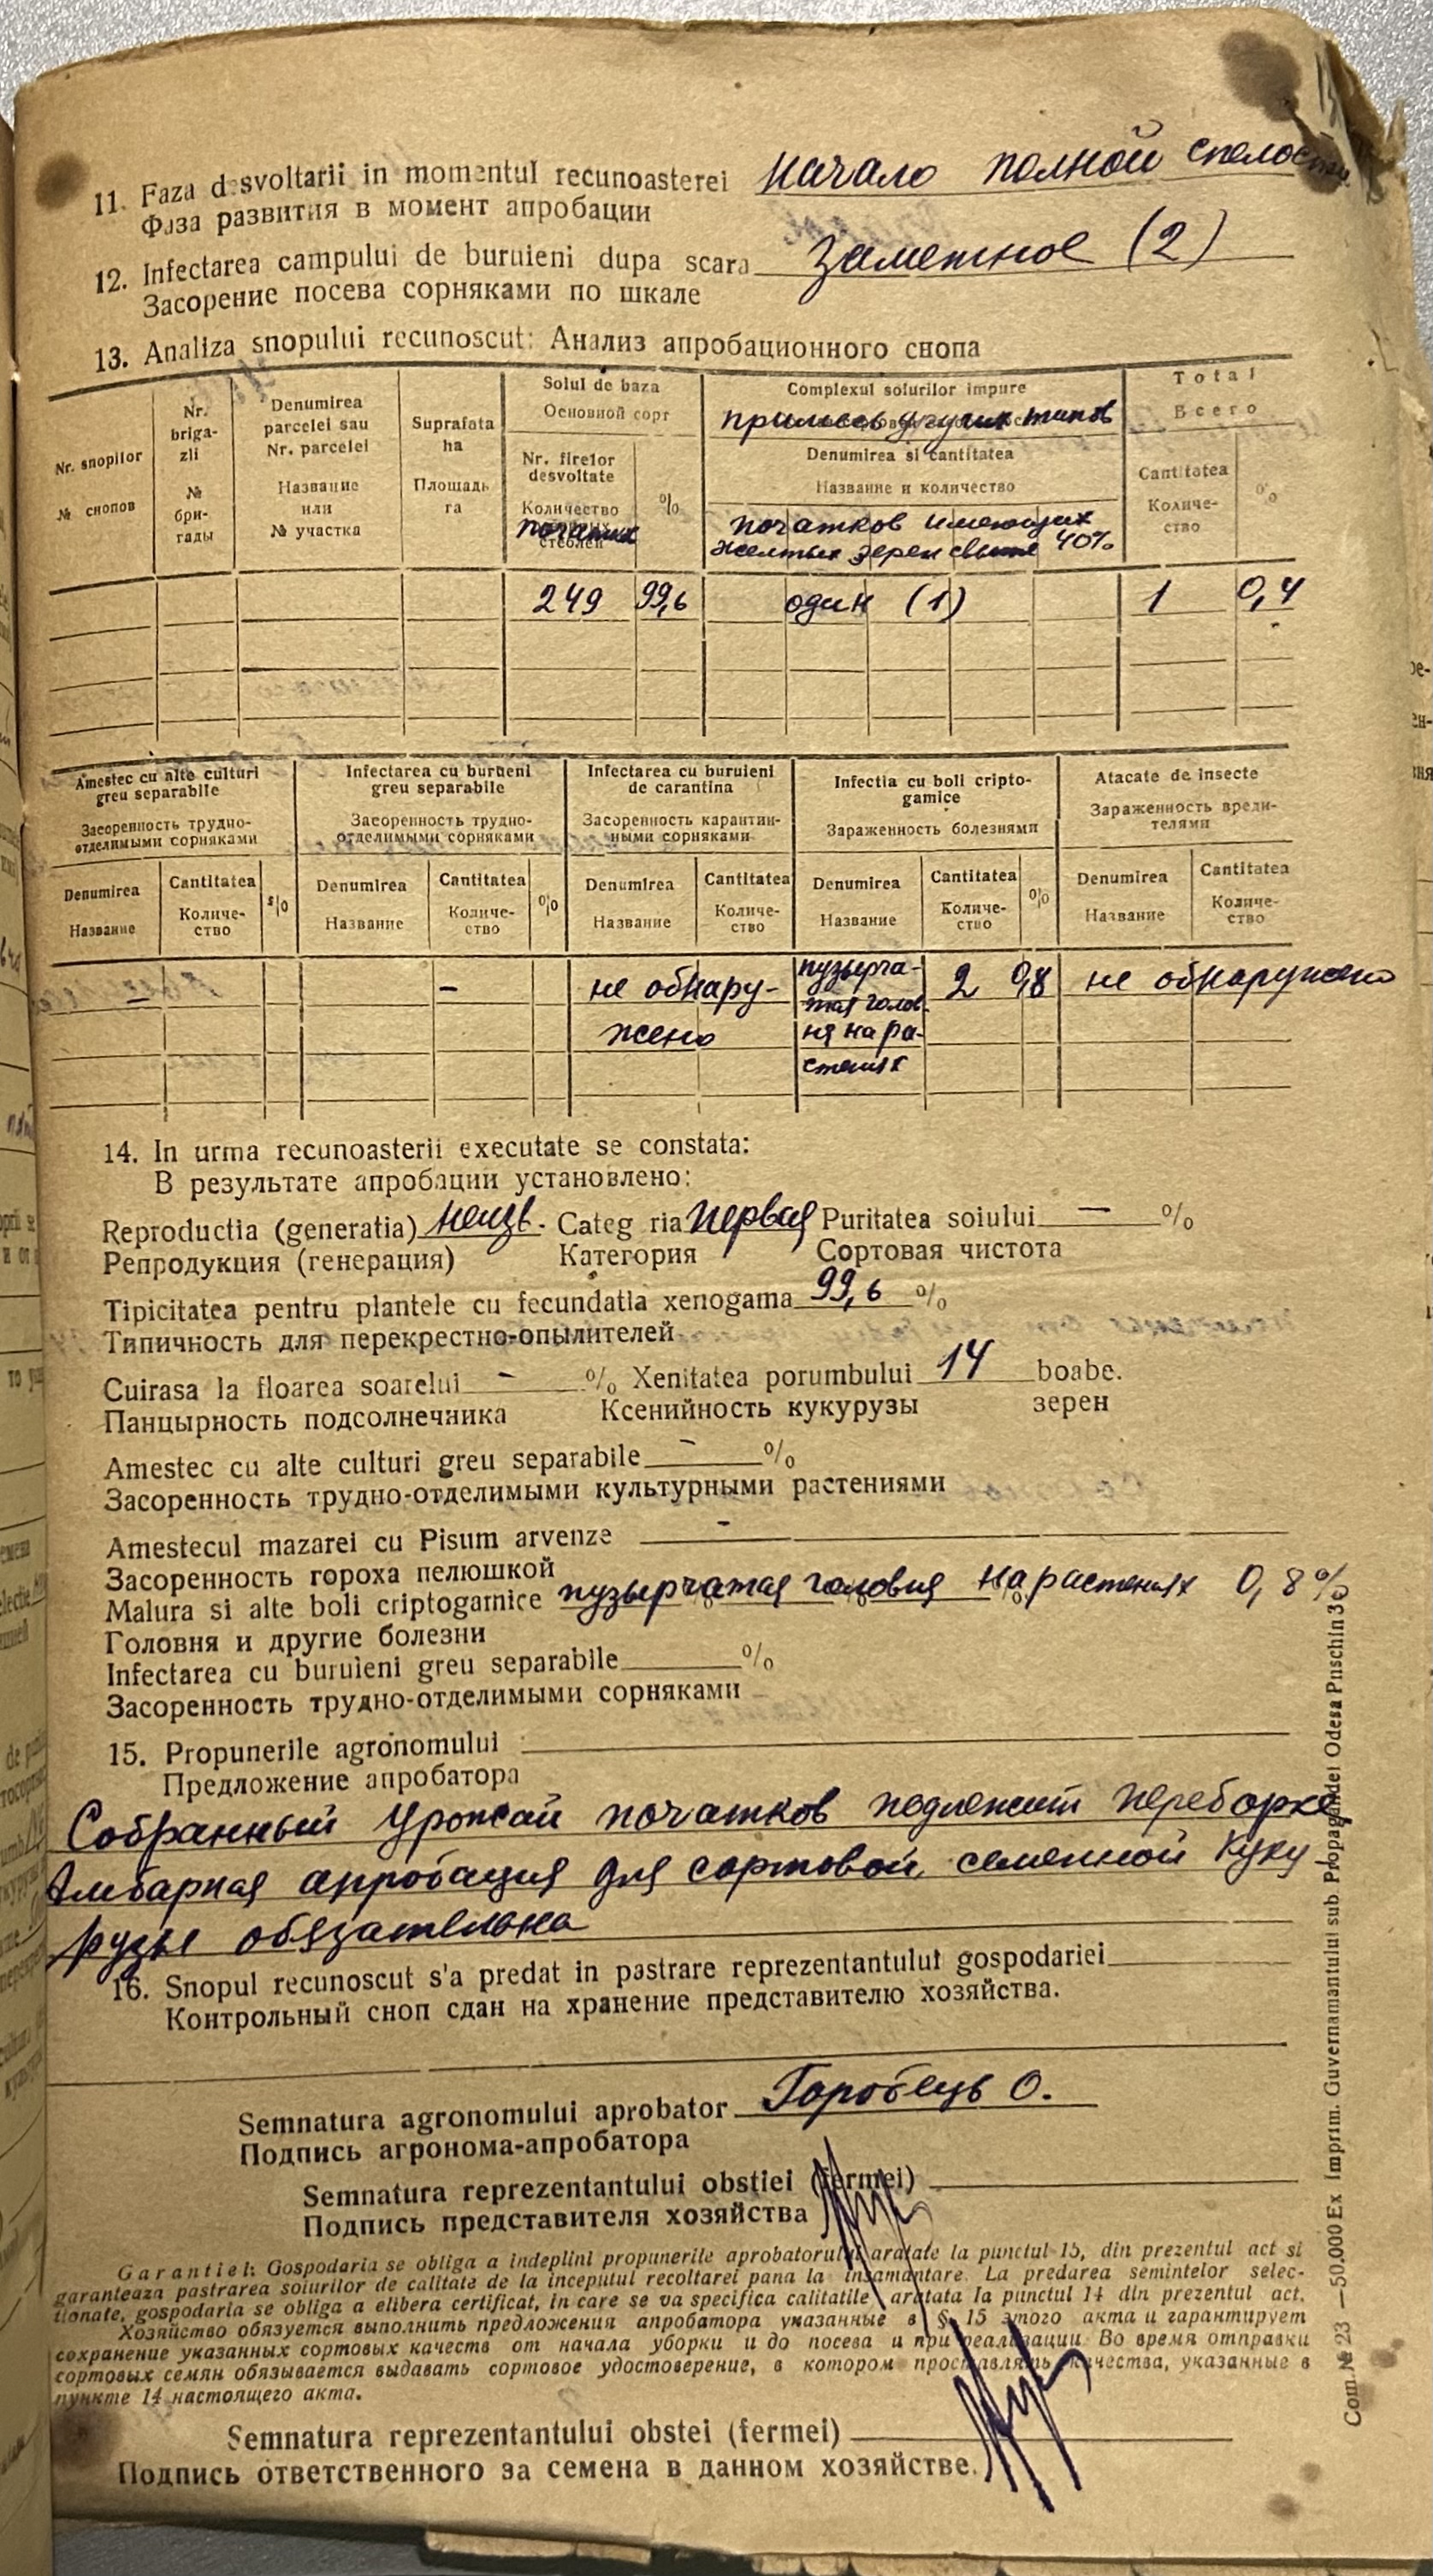 11. Faza desvoltarii in momentul recunoasterei Начало полной спелости
Фаза развития в момент апробации
12. Infectarea campului de buruieni dupa scara Заметное (2)
Засорение посева сорняками по шкале
13. Analiza snopului recunoscut: Анализ апробационного снопа
Nr. snopilor
№ снопов
Nr.
briga-
zii
№
бри-
гады
Denumirea
parcelei sau
Nr. parcelei
Название
или
№ участка
Suprafata
ha
Площадь
га
Soiul de baza
Основной сорт
Nr. firelor
desvoltate
Количество
початков
стеблей
%
Complexul soiurilor impure
примесь других типов
Denumirea si cantitatea
Название и количество
початков имеющих
желтых зерен свыше 40%
Total
Всего
Cantitatea
Количе-
ство
%
249 99,6 один (1) 1 0,4
Amestec cu alte culturi
greu separabile
Засоренность трудно-
отделимыми сорняками
Denumirea
Название
Cantitatea
Количе-
ство
%
Infectarea cu burueni
greu separabile
Засоренность трудно-
отделимыми сорняками
Denumirea
Название
Cantitatea
Количе-
ство
%
Infectarea cu buruieni
de carantina
Засоренность карантин-
ными сорняками
Denumirea
Название
Cantitatea
Количе-
ство
Infectia cu boli cripto-
gamice
Зараженность болезнями
Denumirea
Название
Cantitatea
Количе-
ство
%
Atacate de insecte
Зараженность вреди-
телями
Denumirea
Название
Cantitatea
Количе-
ство
– – не обнару- пузырча- 2 0,8 не обнаружено
жено тая голов-
ня на ра-
стениях
14. In urma recunoasterii executate se constata:
В результате апробации установлено:
Reproductia (generatia) неизв. Categ ria первая Puritatea soiului – %
Репродукция (генерация) Категория Сортовая чистота
Tipicitatea pentru plantele cu fecundatia xenogama 99,6 %
Типичность для перекрестно-опылителей
Cuirasa la floarea soarelui – % Xenitatea porumbului 14 boabe.
Панцырность подсолнечника Ксенийность кукурузы зерен
Amestec cu alte culturi greu separabile – %
Засоренность трудно-отделимыми культурными растениями
Amestecul mazarei cu Pisum arvenze –
Засоренность гороха пелюшкой
Malura si alte boli criptogamice пузырчатая головня на растениях 0,8%
Головня и другие болезни
Infectarea cu buruieni greu separabile %
Засоренность трудно-отделимыми сорняками
15. Propunerile agronomului
Предложение апробатора
Собранный урожай початков подлежит переборке
Амбарная апробация для сортовой семенной куку-
рузы обязательна
16. Snopul recunoscut s'a predat in pastrare reprezentantului gospodariei
Контрольный сноп сдан на хранение представителю хозяйства.
Semnatura agronomului aprobator Горобець О.
Подпись агронома-апробатора
Semnatura reprezentantului obstiei (fermei)
Подпись представителя хозяйства
Garantiel: Gospodaria se obliga a indeplini propunerile aprobatorului aratate la punctul 15, din prezentul act si
garanteaza pastrarea soiurilor de calitate de la inceputul recoltarei pana la insamantare. La predarea semintelor selec-
tionate, gospodaria se obliga a elibera certificat, in care se va specifica calitatile aratata la punctul 14 din prezentul act.
Хозяйство обязуется выполнить предложения апробатора указанные в § 15 этого акта и гарантирует
сохранение указанных сортовых качеств от начала уборки и до посева и при реализации. Во время отправки
сортовых семян обязывается выдавать сортовое удостоверение, в котором проставлять качества, указанные в
пункте 14 настоящего акта.
Semnatura reprezentantului obstei (fermei)
Подпись ответственного за семена в данном хозяйстве.
Com. № 23 —50,000 Ex Imprim. Guvernamantului sub Propagandei Odesa Puschin 36